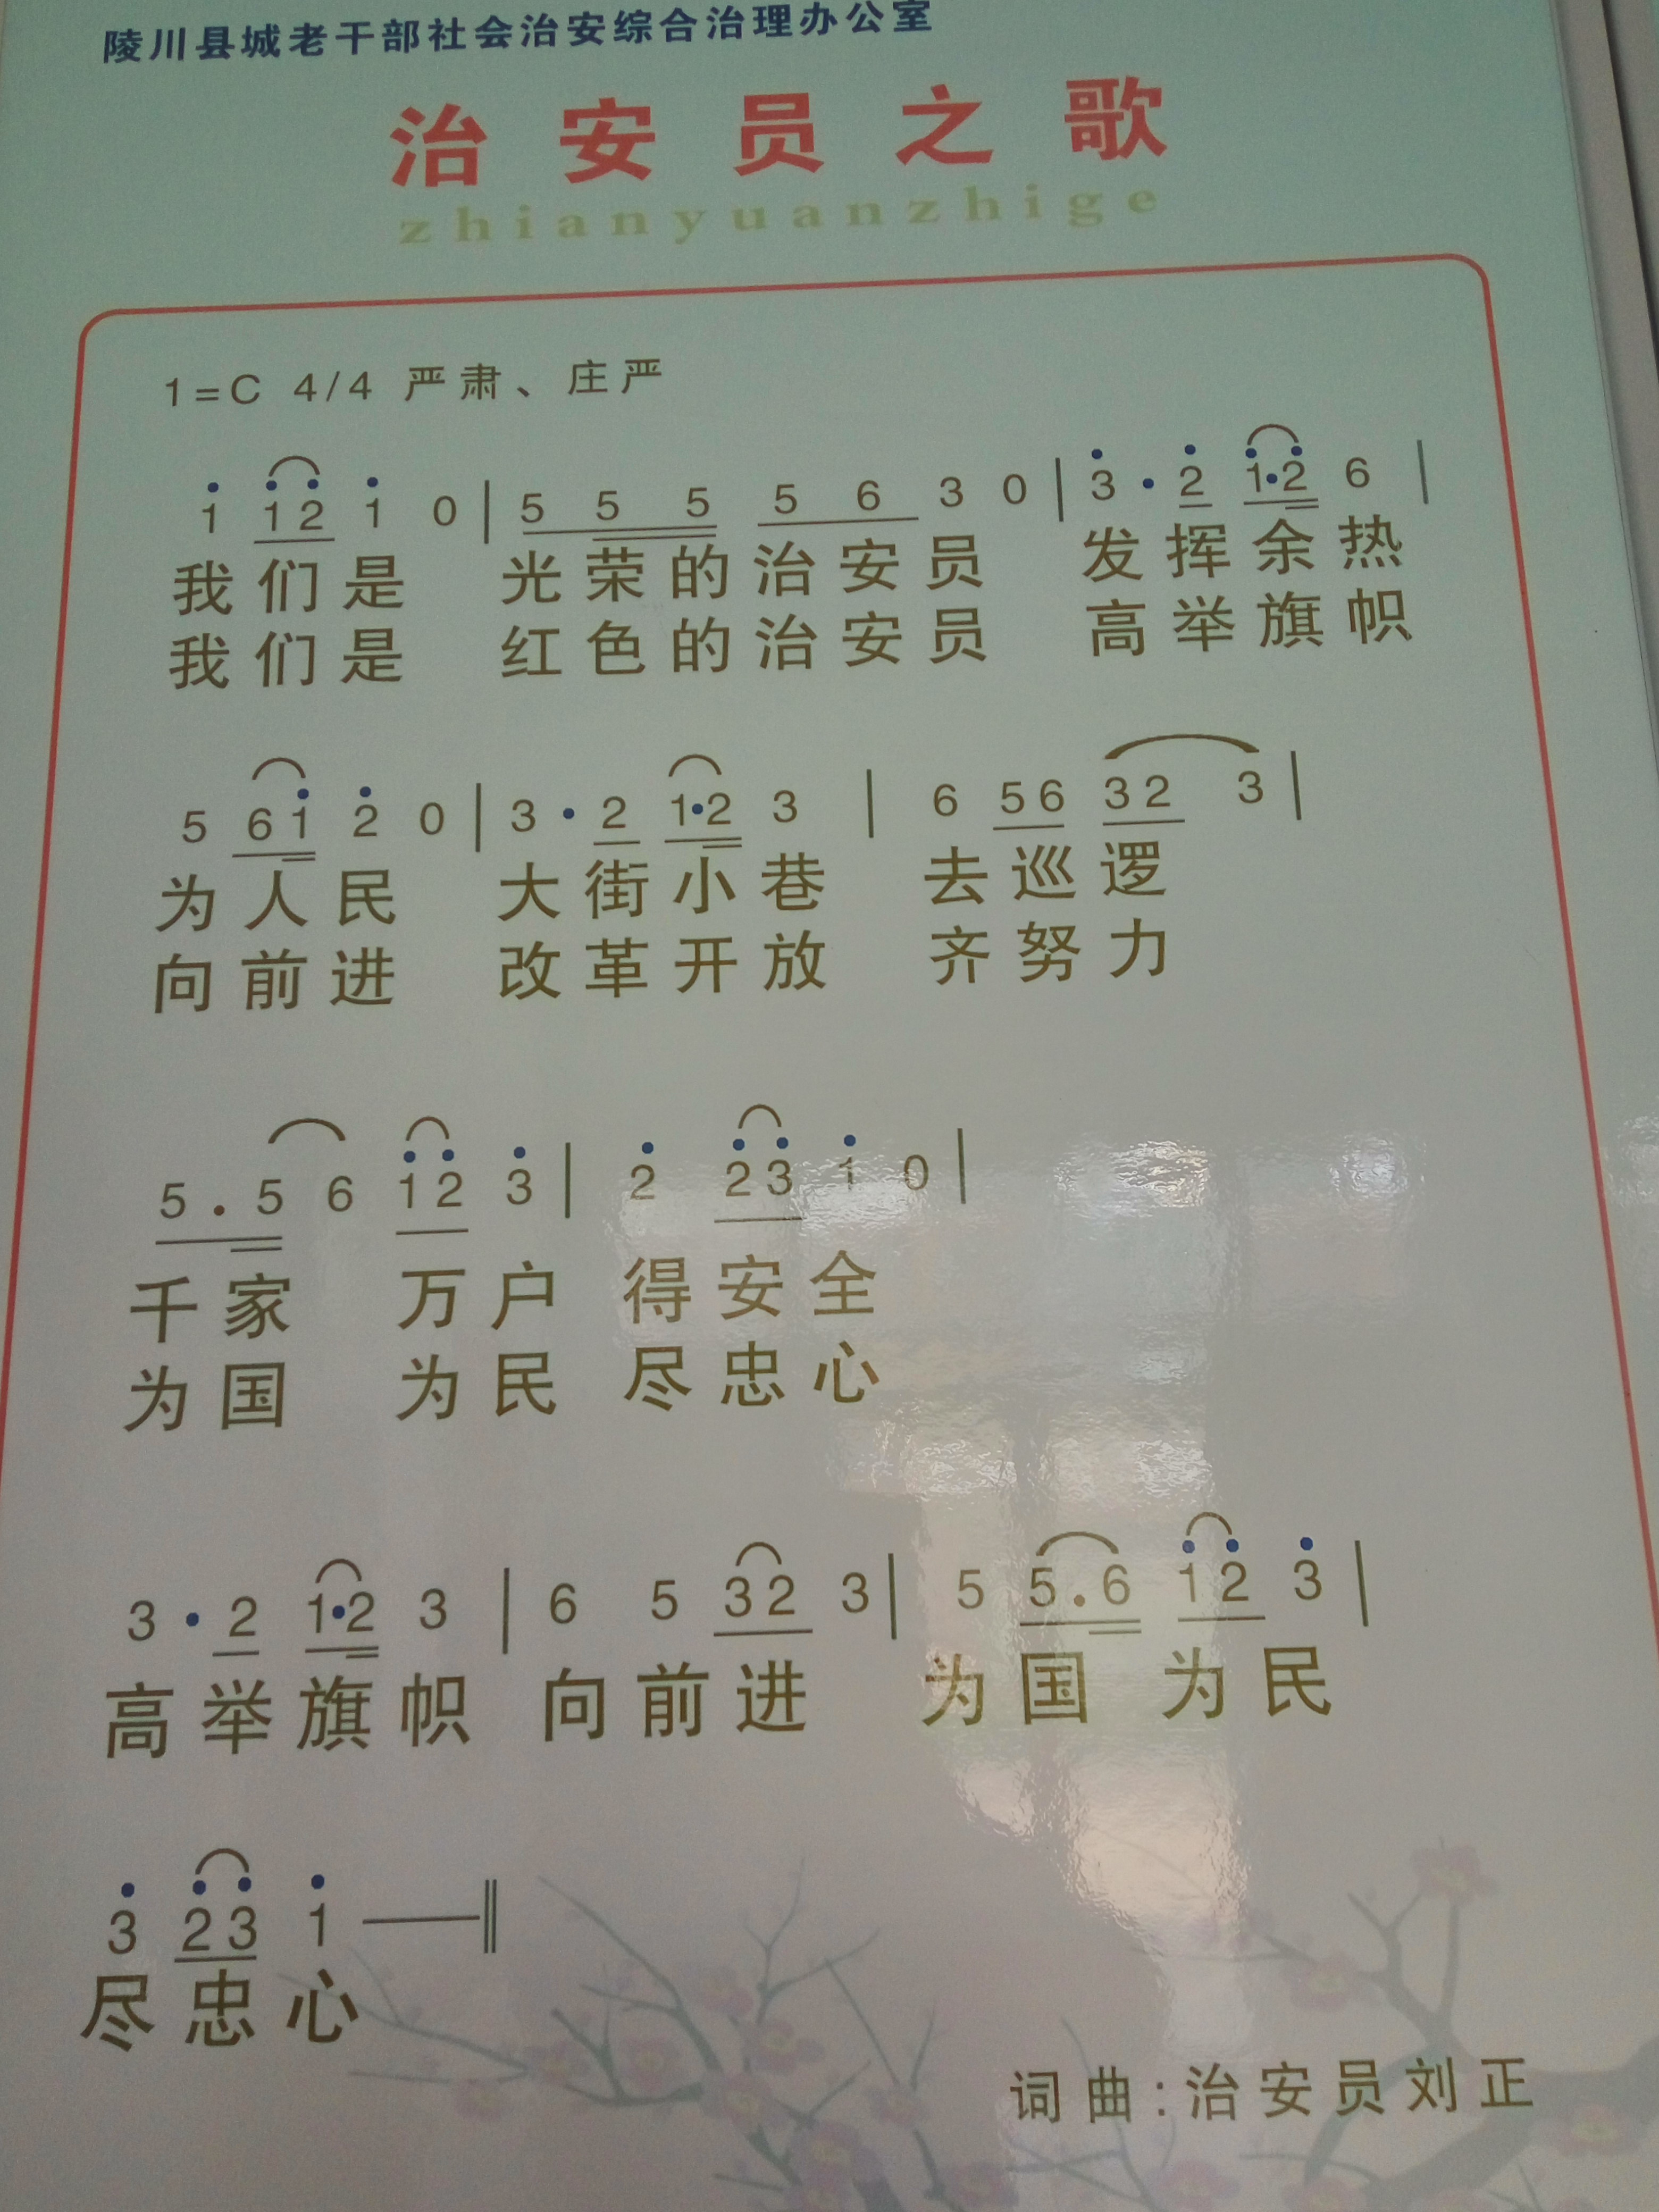 陵川县城老干部社会治安综合治理办公室
治安员之歌
zhianyuanzhige
1=C 4/4 严肃、庄严
1 12 1 0 | 5 5 5 5 6 3 0 | 3 · 2 1·2 6 |
我们是 光荣的治安员 发挥余热
我们是 红色的治安员 高举旗帜
5 61 2 0 | 3 · 2 1·2 3 | 6 56 32 3 |
为人民 大街小巷 去巡逻
向前进 改革开放 齐努力
5 . 5 6 12 3 | 2 23 1 0 |
千家 万户 得安全
为国 为民 尽忠心
3 · 2 1·2 3 | 6 5 32 3 | 5 5.6 12 3 |
高举旗帜 向前进 为国 为民
3 23 1 — ‖
尽忠心
词曲:治安员刘正